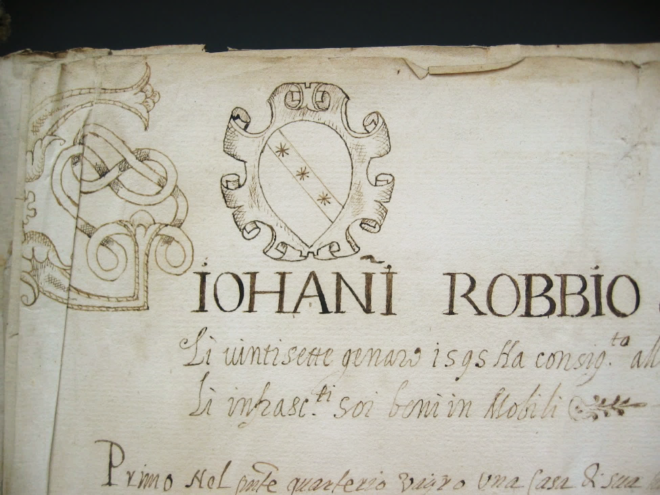 GIOHAÑI ROBBIO
Li vintisette genaro 1595 Ha consig.ta all
Li infrasc.ti soi beni in Mobili
Primo Nel pnte quarterio una Casa di sua